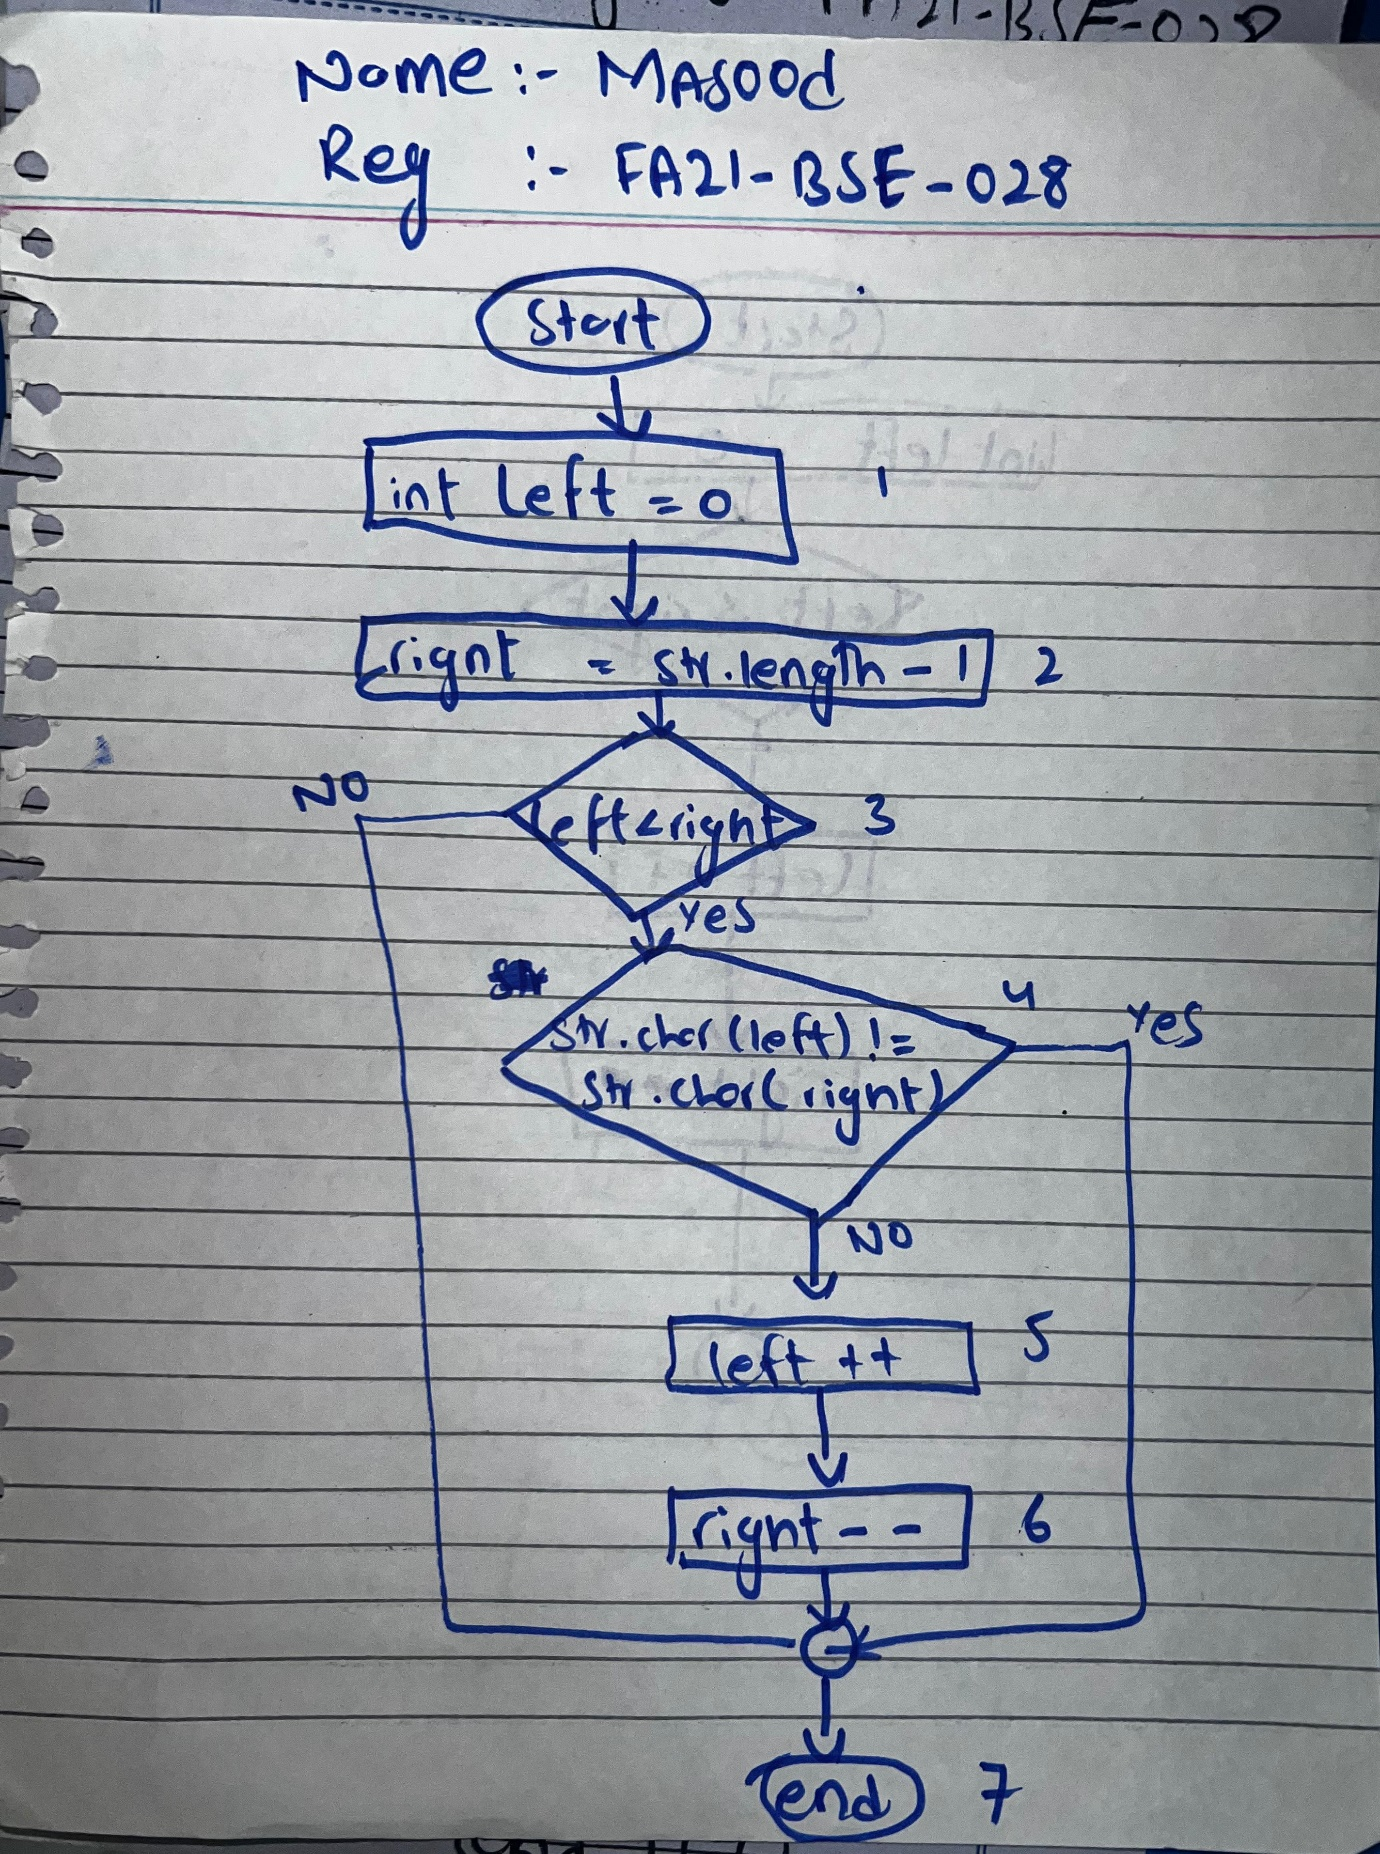 FA21-BSE-028
Name :- MASOOd
Reg :- FA21-BSE-028
Start
int left = 0 1
right = str.length - 1 2
NO
left<right 3
yes
4
yes
str.char(left) !=
str.char(right)
NO
left ++ 5
right - - 6
end 7